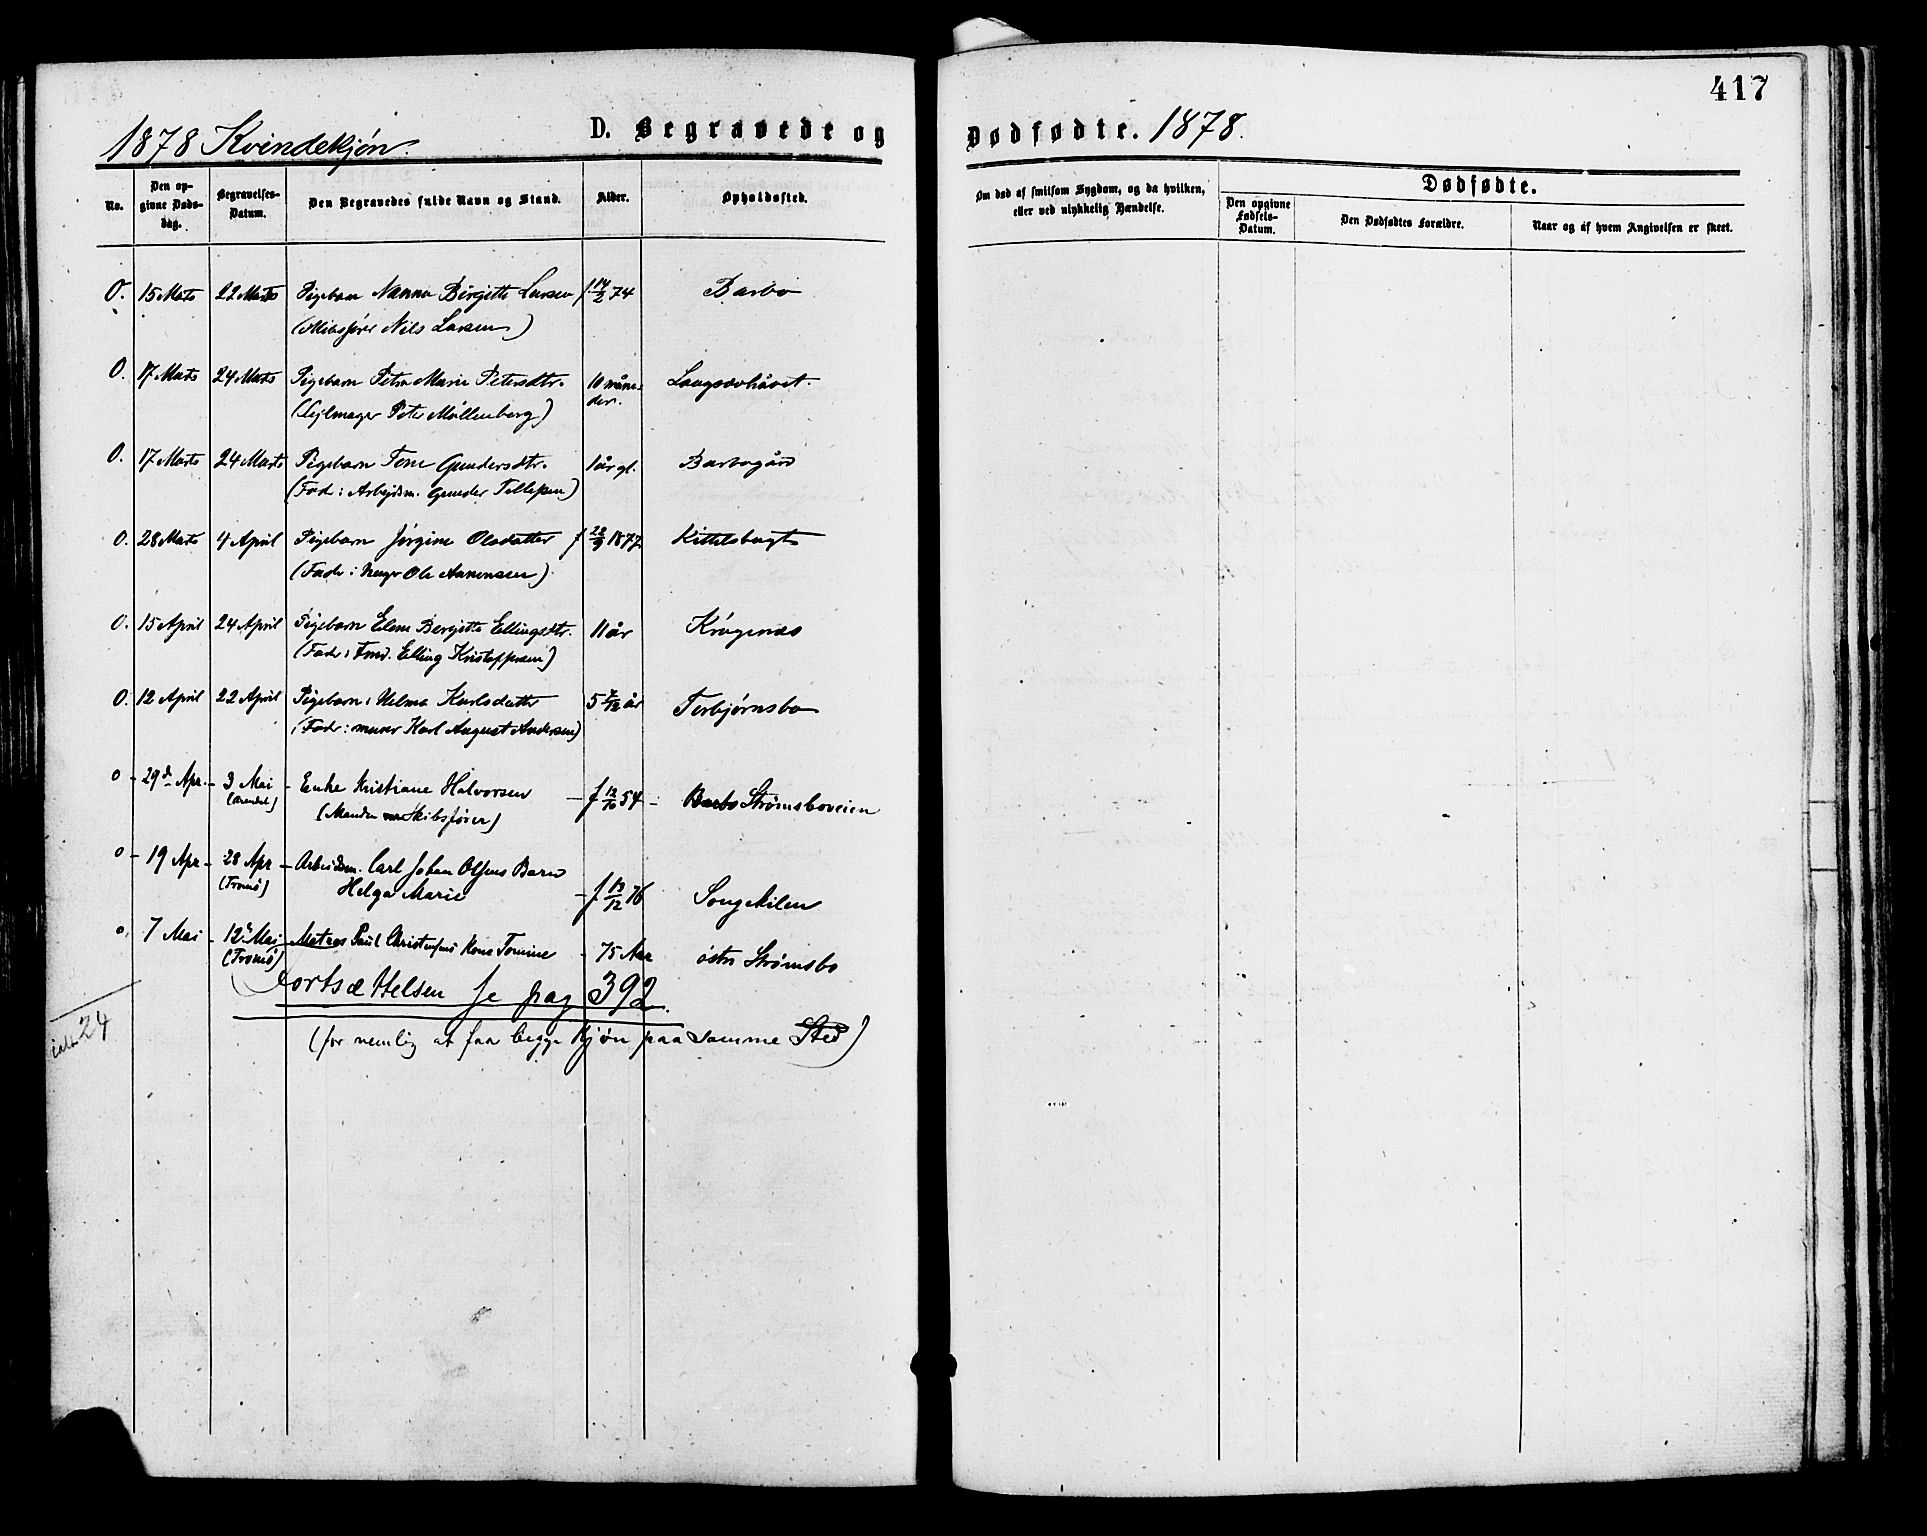 417
1878 Kvindekjøn. D. Begravede og Dødfødte. 1878.
No.
Den opgivne Dødsdag.
Begravelses-Datum.
Den Begravedes fulde Navn og Stand.
Alder.
Opholdssted.
Om død af smitsom Sygdom, og da hvilken,
eller ved ulykkelig Hændelse.
Dødfødte.
Den opgivne Fødsels-Datum.
Den Dødfødtes Forældre.
Naar og af hvem Angivelsen er skeet.
0. 15 Marts 22 Marts Pigebarn Nanna Birgitte Larsen f. 14/2 74 Barbo
(Skibsfører Nils Larsen)
0. 17 Marts 24 Marts Pigebarn Petra Marie Petersdtr. 10 måneder. Langsævhåvet.
(Sejlmager Peter Møllenberg)
0. 17 Marts 24 Marts Pigebarn Tone Gundersdtr. 1 år gl. Barbogård
(Fader: Arbejdsm. Gunder Tellefsen)
0. 28 Marts 4 April Pigebarn Jørgine Olsdatter f 22/9 1877 Kittelsbugt
(Fader: Ole Aanensen)
0. 15 April 24 April Pigebarn Elene Bergitte Ellingsdtr. 11 år Krøgenæs
(Fader: Elling Kristoffersen)
0. 12 April 22 April Pigebarn: Helma Karlsdatter 5 7/12 år Torbjørnsbo
(Fader: murer Karl August Andersen)
0 - 29de Apr. - 3 Mai - Enke Kristiane Halvorsen - f 12/10 54 - Barbo Strømsboveien
(Arendal) (Manden var Skibsfører)
0 - 19 Apr - 28 Apr - Arbeidsm. Carl Johan Olsens Barn
(Tromø) Helga Marie - f 13/12 76 Songekilen
0. 7 Mai - 12te Mai Matros Paul Christensens Kone Tomine - 75 Aar østre Strømsbo
(Tromø)
Fortsættelsen se pag 392.
(for nemlig at faa begge Kjøn paa samme Sted)
ialt 24